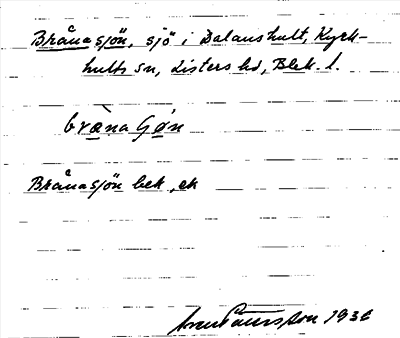 Brånasjön, sjö i Dalanshult, Kyrk-
hults sn, Listers hd, Blek. l.
bræna Gøn
Brånasjön bek, ek
1930